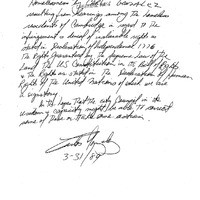 homelessness by
resulting from hearings among the homeless
residents of Cambridge in regard to the
infringement & denial of inalienable rights as
stated in Declaration of Independence 1776
The Rights guaranteed by the supreme Law of the
Land of The U.S Constitution in its Bill of Rights
& The Rights as stated in The Declaration of Human
Rights of The United Nations of which we are
a signatory
In the hopes That the city Council in its
wisdom & sagacity might be able To invent
some of These
3-31/89